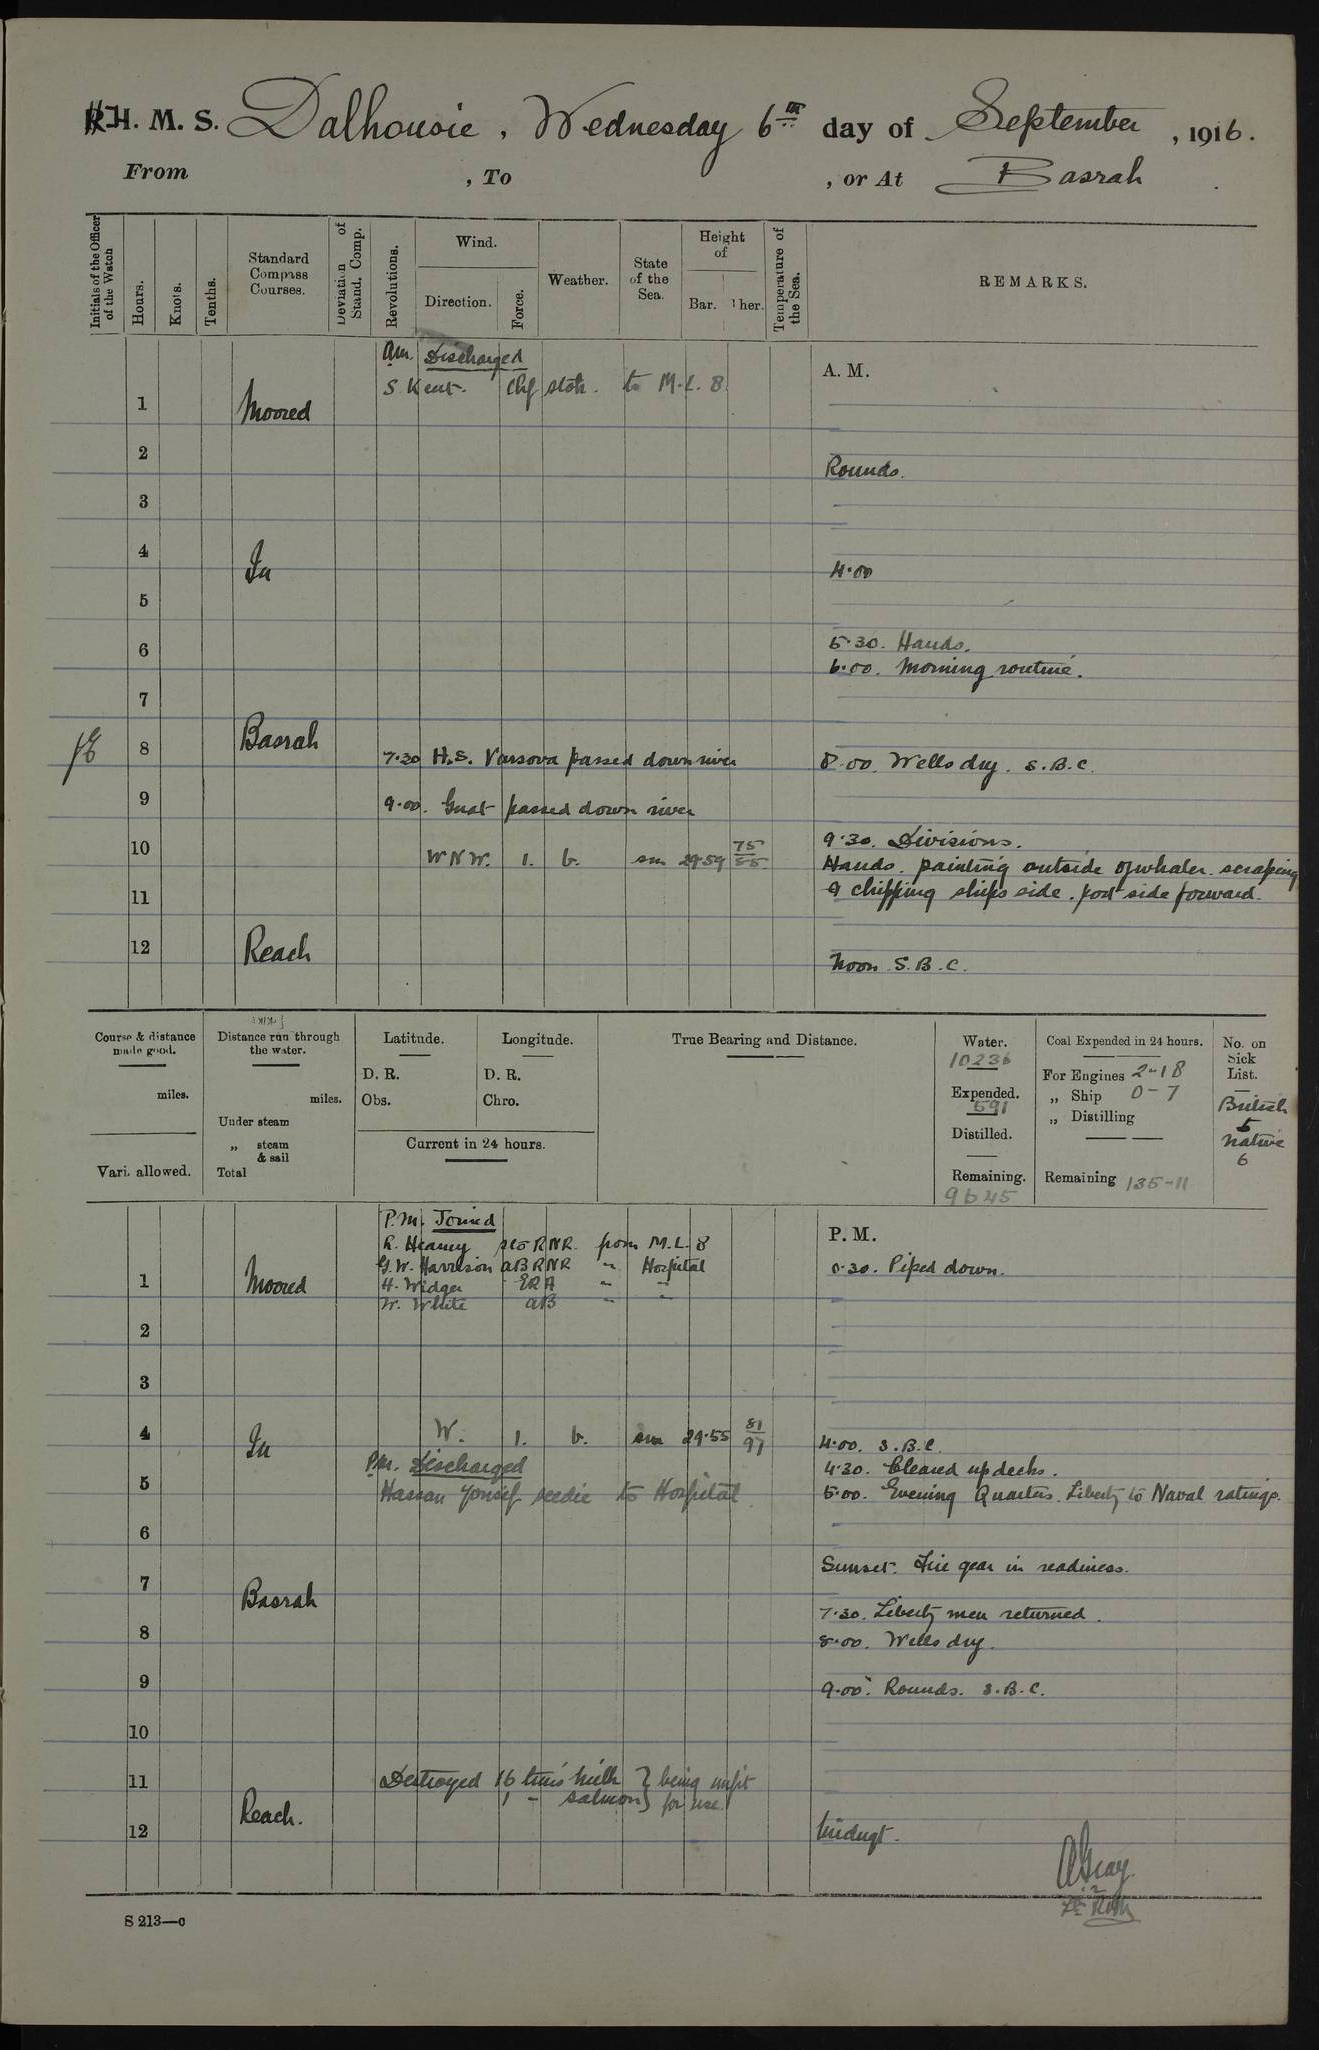 H. M. S. Dalhousie, Wednesday 6th day of September, 1916.
From , To , or At Basrah
Initials of the Officer of the Watch
Hours.
Knots.
Tenths.
Standard Compass Courses.
Deviation of Stand. Comp.
Revolutions.
Wind.
Direction.
Force.
Weather.
State of the Sea.
Height of
Bar.
Ther.
Temperature of the Sea.
REMARKS.
am. Discharged
A. M.
S. Kent. Chf stok. to M.L. 8.
1 Moored
2
Rounds.
3
4 In
4.00
5
5.30. Hands.
6
6.00. Morning routine.
7
8 Basrah
7.30 H.S. Varsova passed down river
8.00. Wells dry. S.B.C.
9
9.00. Gnat passed down river
9.30. Divisions.
10 WNW. 1. b. sm 29.59 75/85
Hands. painting outside of whaler. scraping
11
& chipping ships side. port side forward.
12 Reach
Noon S.B.C.
Course & distance made good.
miles.
Vari. allowed.
Distance run through the water.
miles.
Under steam
„ steam & sail
Total
Latitude.
D. R.
Obs.
Longitude.
D. R.
Chro.
Current in 24 hours.
True Bearing and Distance.
Water.
10236
Expended.
591
Distilled.
Remaining.
9645
Coal Expended in 24 hours.
For Engines 2-18
„ Ship 0-7
„ Distilling
Remaining 135-11
No. on Sick List.
British
5
Native
6
P.M. Joined
P. M.
R. Heaney RNR. from M.L. 8
G.W. Harrison AB RNR " Hospital
0.30. Piped down.
1 Moored
H. Widger ERA " "
W. White AB " "
2
3
4 In W. 1. b. sm 29.55 81/97
4.00. S.B.C.
PM. Discharged
4.30. Cleared up decks.
5
Hassan Yousif seedie to Hospital
5.00. Evening Quarters. Liberty to Naval ratings.
6
Sunset. Fire gear in readiness.
7 Basrah
7.30. Liberty men returned.
8
8.00. Wells dry.
9
9.00. Rounds. S.B.C.
10
11
Destroyed 16 tins milk } being unfit
1 " salmon } for use.
12 Reach.
Midngt.
AGray.
S 213—c